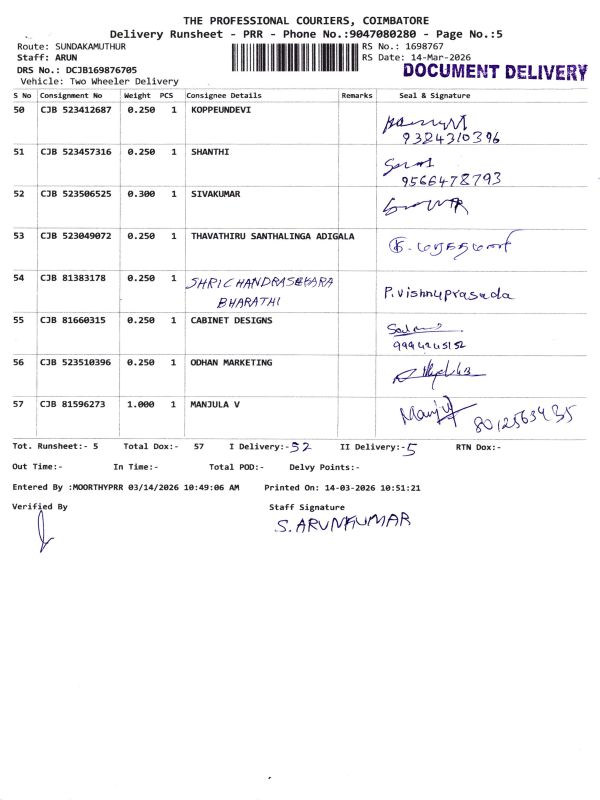 THE PROFESSIONAL COURIERS, COIMBATORE
Delivery Runsheet - PRR - Phone No.:9047080280 - Page No.:5
Route: SUNDAKAMUTHUR RS No.: 1698767
Staff: ARUN RS Date: 14-Mar-2026
DRS No.: DCJB169876705 DOCUMENT DELIVERY
Vehicle: Two Wheeler Delivery
S No Consignment No Weight PCS Consignee Details Remarks Seal & Signature
50 CJB 523412687 0.250 1 KOPPEUNDEVI
9324310396
51 CJB 523457316 0.250 1 SHANTHI
9566478793
52 CJB 523506525 0.300 1 SIVAKUMAR
53 CJB 523049072 0.250 1 THAVATHIRU SANTHALINGA ADIGALA
54 CJB 81383178 0.250 1 SHRICHANDRASEKARA P.vishnuprasada
BHARATHI
55 CJB 81660315 0.250 1 CABINET DESIGNS
9994245152
56 CJB 523510396 0.250 1 ODHAN MARKETING
57 CJB 81596273 1.000 1 MANJULA V Manju 8012563435
Tot. Runsheet:- 5 Total Dox:- 57 I Delivery:-52 II Delivery:-5 RTN Dox:-
Out Time:- In Time:- Total POD:- Delvy Points:-
Entered By :MOORTHYPRR 03/14/2026 10:49:06 AM Printed On: 14-03-2026 10:51:21
Verified By Staff Signature
S. ARUNKUMAR